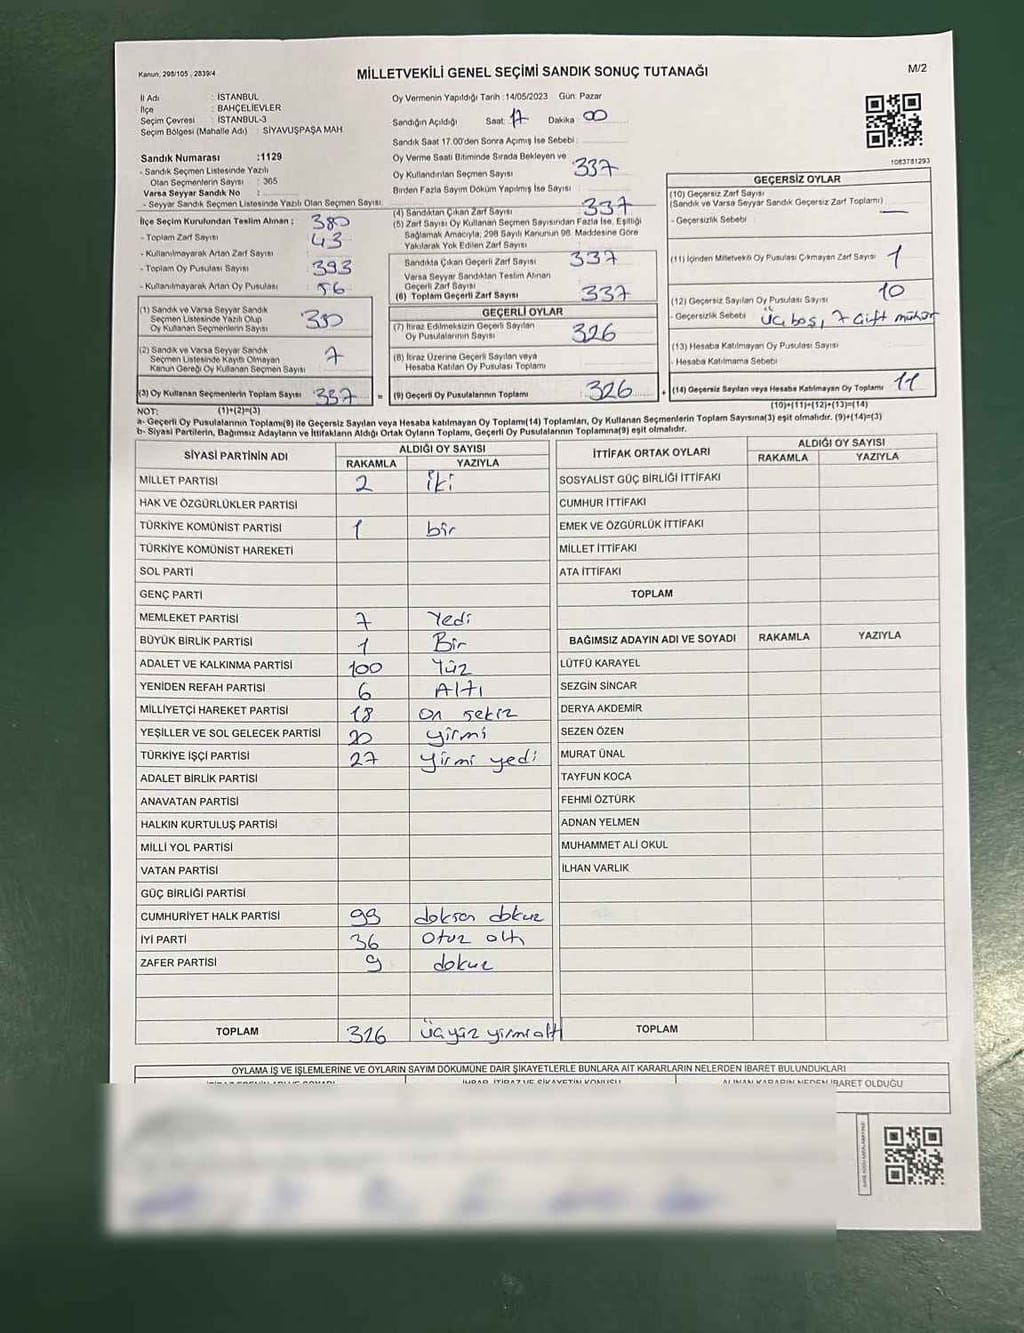 Kanun; 298/105 , 2839/4
MİLLETVEKİLİ GENEL SEÇİMİ SANDIK SONUÇ TUTANAĞI
M/2
İl Adı : İSTANBUL
İlçe : BAHÇELİEVLER
Seçim Çevresi : İSTANBUL-3
Seçim Bölgesi (Mahalle Adı) : SİYAVUŞPAŞA MAH
Sandık Numarası :1129
- Sandık Seçmen Listesinde Yazılı
Olan Seçmenlerin Sayısı : 365
Varsa Seyyar Sandık No :
- Seyyar Sandık Seçmen Listesinde Yazılı Olan Seçmen Sayısı:
Oy Vermenin Yapıldığı Tarih : 14/05/2023 Gün: Pazar
Sandığın Açıldığı Saat: 17 Dakika 00
Sandık Saat 17.00'den Sonra Açılmış İse Sebebi :
Oy Verme Saati Bitiminde Sırada Bekleyen ve
Oy Kullandırılan Seçmen Sayısı 337
Birden Fazla Sayım Döküm Yapılmış İse Sayısı :
1083781293
İlçe Seçim Kurulundan Teslim Alınan ;
- Toplam Zarf Sayısı 380
- Kullanılmayarak Artan Zarf Sayısı 43
- Toplam Oy Pusulası Sayısı 393
- Kullanılmayarak Artan Oy Pusulası 56
(1) Sandık ve Varsa Seyyar Sandık
Seçmen Listesinde Yazılı Olup
Oy Kullanan Seçmenlerin Sayısı 330
(2) Sandık ve Varsa Seyyar Sandık
Seçmen Listesinde Kayıtlı Olmayan
Kanun Gereği Oy Kullanan Seçmen Sayısı 7
(3) Oy Kullanan Seçmenlerin Toplam Sayısı 337 =
(4) Sandıktan Çıkan Zarf Sayısı 337
(5) Zarf Sayısı Oy Kullanan Seçmen Sayısından Fazla İse, Eşitliği
Sağlamak Amacıyla; 298 Sayılı Kanunun 98. Maddesine Göre
Yakılarak Yok Edilen Zarf Sayısı
Sandıkta Çıkan Geçerli Zarf Sayısı 337
Varsa Seyyar Sandıktan Teslim Alınan
Geçerli Zarf Sayısı
(6) Toplam Geçerli Zarf Sayısı 337
GEÇERLİ OYLAR
(7) İtiraz Edilmeksizin Geçerli Sayılan
Oy Pusulalarının Sayısı 326
(8) İtiraz Üzerine Geçerli Sayılan veya
Hesaba Katılan Oy Pusulası Toplamı
(9) Geçerli Oy Pusulalarının Toplamı 326 +
GEÇERSİZ OYLAR
(10) Geçersiz Zarf Sayısı
(Sandık ve Varsa Seyyar Sandık Geçersiz Zarf Toplamı)
- Geçersizlik Sebebi :
(11) İçinden Milletvekili Oy Pusulası Çıkmayan Zarf Sayısı 1
(12) Geçersiz Sayılan Oy Pusulası Sayısı 10
- Geçersizlik Sebebi üç boş, 7 çift mühür
(13) Hesaba Katılmayan Oy Pusulası Sayısı
- Hesaba Katılmama Sebebi
(14) Geçersiz Sayılan veya Hesaba Katılmayan Oy Toplamı 11
NOT: (1)+(2)=(3) (10)+(11)+(12)+(13)=(14)
a- Geçerli Oy Pusulalarının Toplamı(9) ile Geçersiz Sayılan veya Hesaba katılmayan Oy Toplamı(14) Toplamları, Oy Kullanan Seçmenlerin Toplam Sayısına(3) eşit olmalıdır. (9)+(14)=(3)
b- Siyasi Partilerin, Bağımsız Adayların ve İttifakların Aldığı Ortak Oyların Toplamı, Geçerli Oy Pusulalarının Toplamına(9) eşit olmalıdır.
SİYASİ PARTİNİN ADI ALDIĞI OY SAYISI
RAKAMLA YAZIYLA
MİLLET PARTİSİ 2 iki
HAK VE ÖZGÜRLÜKLER PARTİSİ
TÜRKİYE KOMÜNİST PARTİSİ 1 bir
TÜRKİYE KOMÜNİST HAREKETİ
SOL PARTİ
GENÇ PARTİ
MEMLEKET PARTİSİ 7 Yedi
BÜYÜK BİRLİK PARTİSİ 1 Bir
ADALET VE KALKINMA PARTİSİ 100 Yüz
YENİDEN REFAH PARTİSİ 6 Altı
MİLLİYETÇİ HAREKET PARTİSİ 18 on sekiz
YEŞİLLER VE SOL GELECEK PARTİSİ 20 yirmi
TÜRKİYE İŞÇİ PARTİSİ 27 yirmi yedi
ADALET BİRLİK PARTİSİ
ANAVATAN PARTİSİ
HALKIN KURTULUŞ PARTİSİ
MİLLİ YOL PARTİSİ
VATAN PARTİSİ
GÜÇ BİRLİĞİ PARTİSİ
CUMHURİYET HALK PARTİSİ 99 doksan dokuz
İYİ PARTİ 36 otuz altı
ZAFER PARTİSİ 9 dokuz
TOPLAM 326 üçyüz yirmi altı
İTTİFAK ORTAK OYLARI ALDIĞI OY SAYISI
RAKAMLA YAZIYLA
SOSYALİST GÜÇ BİRLİĞİ İTTİFAKI
CUMHUR İTTİFAKI
EMEK VE ÖZGÜRLÜK İTTİFAKI
MİLLET İTTİFAKI
ATA İTTİFAKI
TOPLAM
BAĞIMSIZ ADAYIN ADI VE SOYADI RAKAMLA YAZIYLA
LÜTFÜ KARAYEL
SEZGİN SİNCAR
DERYA AKDEMİR
SEZEN ÖZEN
MURAT ÜNAL
TAYFUN KOCA
FEHMİ ÖZTÜRK
ADNAN YELMEN
MUHAMMET ALİ OKUL
İLHAN VARLIK
TOPLAM
OYLAMA İŞ VE İŞLEMLERİNE VE OYLARIN SAYIM DÖKÜMÜNE DAİR ŞİKAYETLERLE BUNLARA AİT KARARLARIN NELERDEN İBARET BULUNDUKLARI
İHBAR, İTİRAZ VE ŞİKAYETİN KONUSU ALINAN KARARIN NEDEN İBARET OLDUĞU